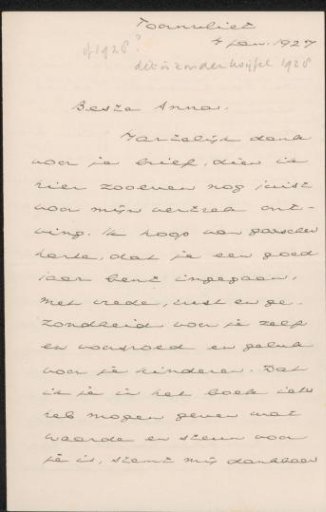 Toornvliet
4 jan. 1927
of 1928?
dit is zonder twijfel 1928
Beste Anna.
Hartelijk dank
voor je brief, dien ik
hier zooeven nog juist
voor mijn vertrek ont-
ving. Ik hoop van ganscher
harte, dat je een goed
jaar bent ingegaan,
met vrede, rust en ge-
zondheid voor je zelf
en voorspoed en geluk
voor je kinderen. Dat
ik je in het boek iets
heb mogen geven wat
waarde en steun voor
je is, stemt mij dankbaar